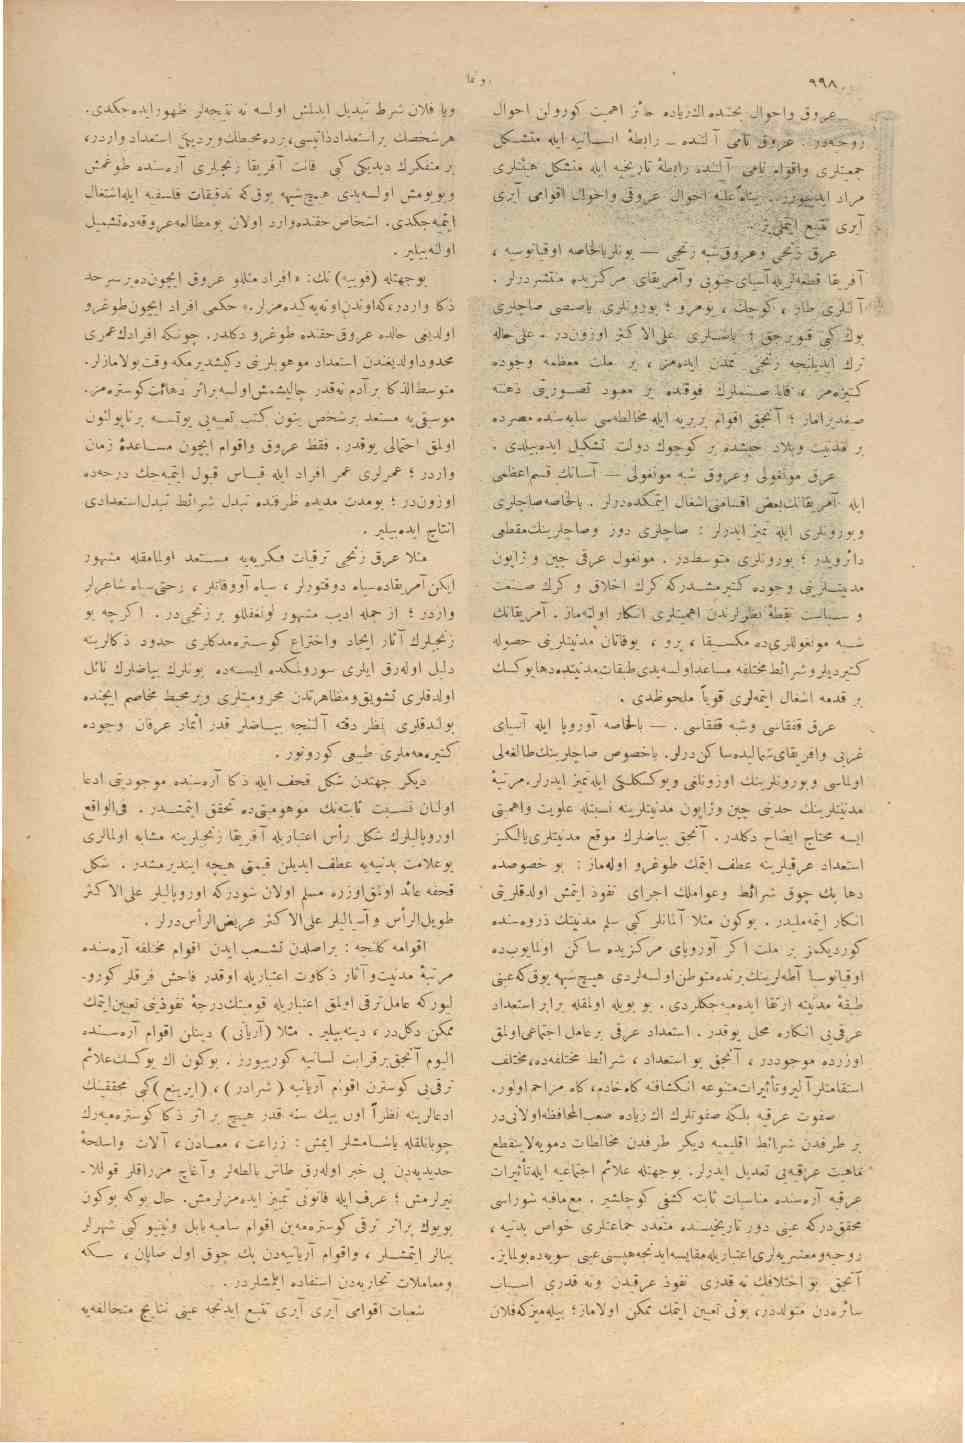 ٩٩٨
عروق واحوال بحثنده اك زیاده حائز اهمیت كورولن احوال
روحیه‌در. عروق نامی آلتنده ـ رابطهٔ انسانیه ایله متشكل
جمعیتلری واقوام نامی آلتنده رابطهٔ تاریخیه ایله متشكل هیئتلری
مراد ایدییورز. بناءً علیه احوال عروقی واحوال اقوامی آیری
آیری تتبع ایتملی‌یز.
عرق زنجی وعروق شبه زنجی — بونلر بالخاصه اوقیانوسیه ،
آفریقا قطعه‌لریله آسیای جنوبی وآمریقای مركزیده منتشردرلر .
آلنلری طار ، كوچك ، یومرو ؛ بورونلری یاصصی صاچلری
یوك كبی قیویرجق ؛ باشلری علی الاكثر اوزون‌در . علی حاله
ترك ایدیلنجه زنجی تمدن ایده‌مز ، بر ملت معظمه وجوده
كتیره‌مز ، قابا صنملرك فوقنده بر معبود تصورینی ذهنه
صیغدیراماز ؛ آنجق اقوام بربریه ایله مخالطه‌سی سایه‌سنده مصرده
بر مدنیت وبلاد حبشده بر كوچوك دولت تشكیل ایده‌بیلدی .
عرق مونغولی وعروق شبه مونغولی — آسیانك قسم اعظمی
ایله آمریقانك بعض اقسامنی اشغال ایتمكده‌درلر . بالخاصه صاچلری
وبورونلری ایله تمیز ایدرلر : صاچلری دوز وصاچلرینك مقطعی
دائرویدر ؛ بورونلری متوسطدر . مونغول عرقی چین و ژاپون
مدنیتلرینی وجوده كتیرمشدركه كرك اخلاق و كرك صنعت
و سیاست نقطهٔ نظرلرندن اهمیتلری انكار اولنه‌ماز . آمریقانك
شبه مونغوللری‌ده مكسیقا ، پرو ، یوقاتان مدنیتلرینی حصوله
كتیردیلر وشرائط مختلفه مساعد اولسه‌یدی طبقات مدنیتده دها یوكسك
بر قدمه اشغال ایتمه‌لری قویاً ملحوظدی .
عرق قفقاسی وشبه قفقاسی . — بالخاصه آوروپا ایله آسیای
غربی وافریقای شمالیده ساكن درلر. باخصوص صاچلرینك طالغه‌لی
اولماسی وبورونلرینك اوزونلغی ویوكسكلكی ایله تمیز ایدرلر. مرتبهٔ
مدنیتلرینك حدنی چین وژاپون مدنیتلرینه نسبتله علویت واهمیتی
ایسه محتاج ایضاح دكلدر. آنجق بیاضلرك موقع مدنیتلری یالكز
استعداد عرقیلرینه عطف ایتمك طوغرو اوله‌ماز : بو خصوصده
دها پك چوق شرائط وعواملك اجرای نفوذ ایتمش اولدقلرینی
انكار ایتمه‌ملیدر. بوكون مثلا آلمانلر كبی سلم مدنیتك ذروه‌سنده
كوردیكمز بر ملت اكر آوروپای مركزیده ساكن اولمایوب‌ده
اوقیانوسیا آطه‌لرینك برنده متوطن اولسه‌لردی هیچ شبهه یوق كه عینی
طبقهٔ مدنیته ارتقا ایده‌میه‌جكلردی. بو بویله اولمقله برابر استعداد
عرقی‌یی انكاره محل یوقدر. استعداد عرقی بر عامل اجتماعی اولمق
اوزرده موجوددر ، آنجق بو استعداد ، شرائط مختلفه‌ده، مختلف
استقامتلر آلیر وتأثیرات متنوعه انكشافنه كاه خادم، كاه مزاحم اولور.
صفوت عرقیه بلكه صفوتلرك اك زیاده صعب المحافظه اولانی‌در
بر طرفدن شرائط اقلیمیه دیكر طرفدن مخالطات دمویه لاینقطع
ماهیت عرقیه‌یی تعدیل ایدرلر. بوجهتله علائم اجتماعیه ایله تأثیرات
عرقیه آره‌سنده مناسبات ثابته كشفی كوچلشیر . مع‌مافیه شوراسی
محقق‌دركه عینی دور تاریخیسنده متعدد جماعتلری خواص بدنیه ،
روحیه ومعشریه‌لری اعتباریله مقایسه ایدنجه هپسنی عینی سویه‌ده بولمایز.
آنجق بو اختلافك نه قدری نفوذ عرقیدن ونه قدری اسباب
سائره‌دن متولددر، بونی تعیین ایتمك ممكن اولاماز؛ بیله‌میز كه فلان
ویا فلان شرط تبدیل ایدلمش اولسه نه نتیجه‌لر ظهور ایده‌جكدی.
هر شخصك بر استعداد ذاتیسی، برده محیطك ویردیكی استعداد واردر،
بر متفكرك دیدیكی كبی قانت آفریقا زنجیلری آره‌سنده طوغمش
وبویومش اولسه‌یدی هیچ شبهه یوق كه تدقیقات فلسفیه ایله اشتغال
ایتمیه‌جكدی. اشخاص حقنده وارد اولان بو مطالعه عروقه‌ده تشمیل
اولنه‌بیلیر .
بوجهتله (فوییه) نك: « افراد مثللو عروق ایچون‌ده بر سرحد
ذكا واردر، كه اوندن اوته‌یه كیده‌مزلر.» حكمی افراد ایچون طوغرو
اولدیغی حالده عروق حقنده طوغرو دكلدر. چونكه افرادك عمری
محدود اولدیغندن استعداد موهوبلرینی دكیشدیرمكه وقت بولامازلر.
متوسط الذكا بر آدم نه‌قدر چالیشمش اولسه بر اثر دهائت كوستره‌مز.
موسیقی‌یه مستعد بر شخص بتون كتب تعبیه‌یی یوتسه بر ناپولئون
اولمق احتمالی یوقدر. فقط عروق واقوام ایچون مساعدهٔ زمان
واردر ؛ عمرلری عمر افراد ایله قیاس قبول ایتمیه‌جك درجه‌ده
اوزون‌در ؛ بو مدت مدیده ظرفنده تبدل شرائط تبدل استعدادی
انتاج ایده‌بیلیر .
مثلا عرق زنجی ترقیات فكریه‌یه مستعد اولمامقله مشهور
ایكن آمریقاده سیاه دوقتورلر ، سیاه آووقاتلر ، حتی سیاه شاعرلر
واردر ؛ از جمله ادیب مشهور لونغفللو بر زنجی‌در. اكرچه بو
زنجیلرك آثار ایجاد واختراع كوستره‌مدكلری حدود ذكالرینه
دلیل اوله‌رق ایلری سورولمكده ایسه‌ده بونلرك بیاضلرك نائل
اولدقلری تشویق ومظاهرتدن محرومیتلری وبر محیط مخاصم ایچنده
بولندقلری نظر دقته آلننجه بیاضلر قدر اثمار عرفان وجوده
كتیره‌مه‌ملری طبیعی كورونور .
دیكر جهتدن شكل قحف ایله ذكا آره‌سنده موجودیتی ادعا
اولنان نسبت ثابته‌نك موهومیتی‌ده تحقق ایتمشدر. فی‌الواقع
اوروپالیلرك شكل رأس اعتباریله آفریقا زنجیلرینه مشابه اولمالری
بو علامت بدنیه‌یه عطف ایدیلن قیمتی هیچه ایندیرمشدر . شكل
قحفه عائد اولمق اوزره مسلم اولان شودركه اوروپالیلر علی الاكثر
طویل الرأس و آسیالیلر علی الاكثر عریض الرأس‌درلر .
اقوامه كلنجه : بر اصلدن تشعب ایدن اقوام مختلفه آره‌سنده
مرتبهٔ مدنیت وآثار ذكاوت اعتباریله اوقدر فاحش فرقلر كورو-
لیوركه عامل ترقی اولمق اعتباریله قومیتك درجهٔ نفوذینی تعیین ایتمك
ممكن دكل‌در ، دینه‌بیلیر. مثلا (آریانی) دینلن اقوام آره‌سنده
الیوم آنجق بر قرابت لسانیه كورییورز. بوكون اك یوكسك علائم
ترقی‌یی كوسترن اقوام آریانیه ( شرادر ) ، (ایرینغ) كبی محققینك
ادعالرینه نظراً اون بیك سنه قدر هیچ بر اثر ذكا كوستره‌میه‌رك
چوبانلقله یاشامشلر ایمش : زراعت ، معادن ، آلات واسلحهٔ
حدیدیه‌دن بی خبر اوله‌رق طاش بالطه‌لر وآغاج مزراقلر قوللا-
نیرلرمش ؛ عرف ایله قانونی تمییز ایده‌مزلرمش. حال بوكه بوكون
بویوك براثر ترقی كوستره‌مه‌ین اقوام سامیه بابل ونینیوا كبی شهرلر
بنالر ایتمشلر ، واقوام آریانیه‌دن پك چوق اول صاپان ، سكه
ومعاملات تجاریه‌دن استفاده ایله‌مشلردر .
شعبات اقوامی آیری آیری تتبع ایدنجه عینی نتایج متخالفه‌یه